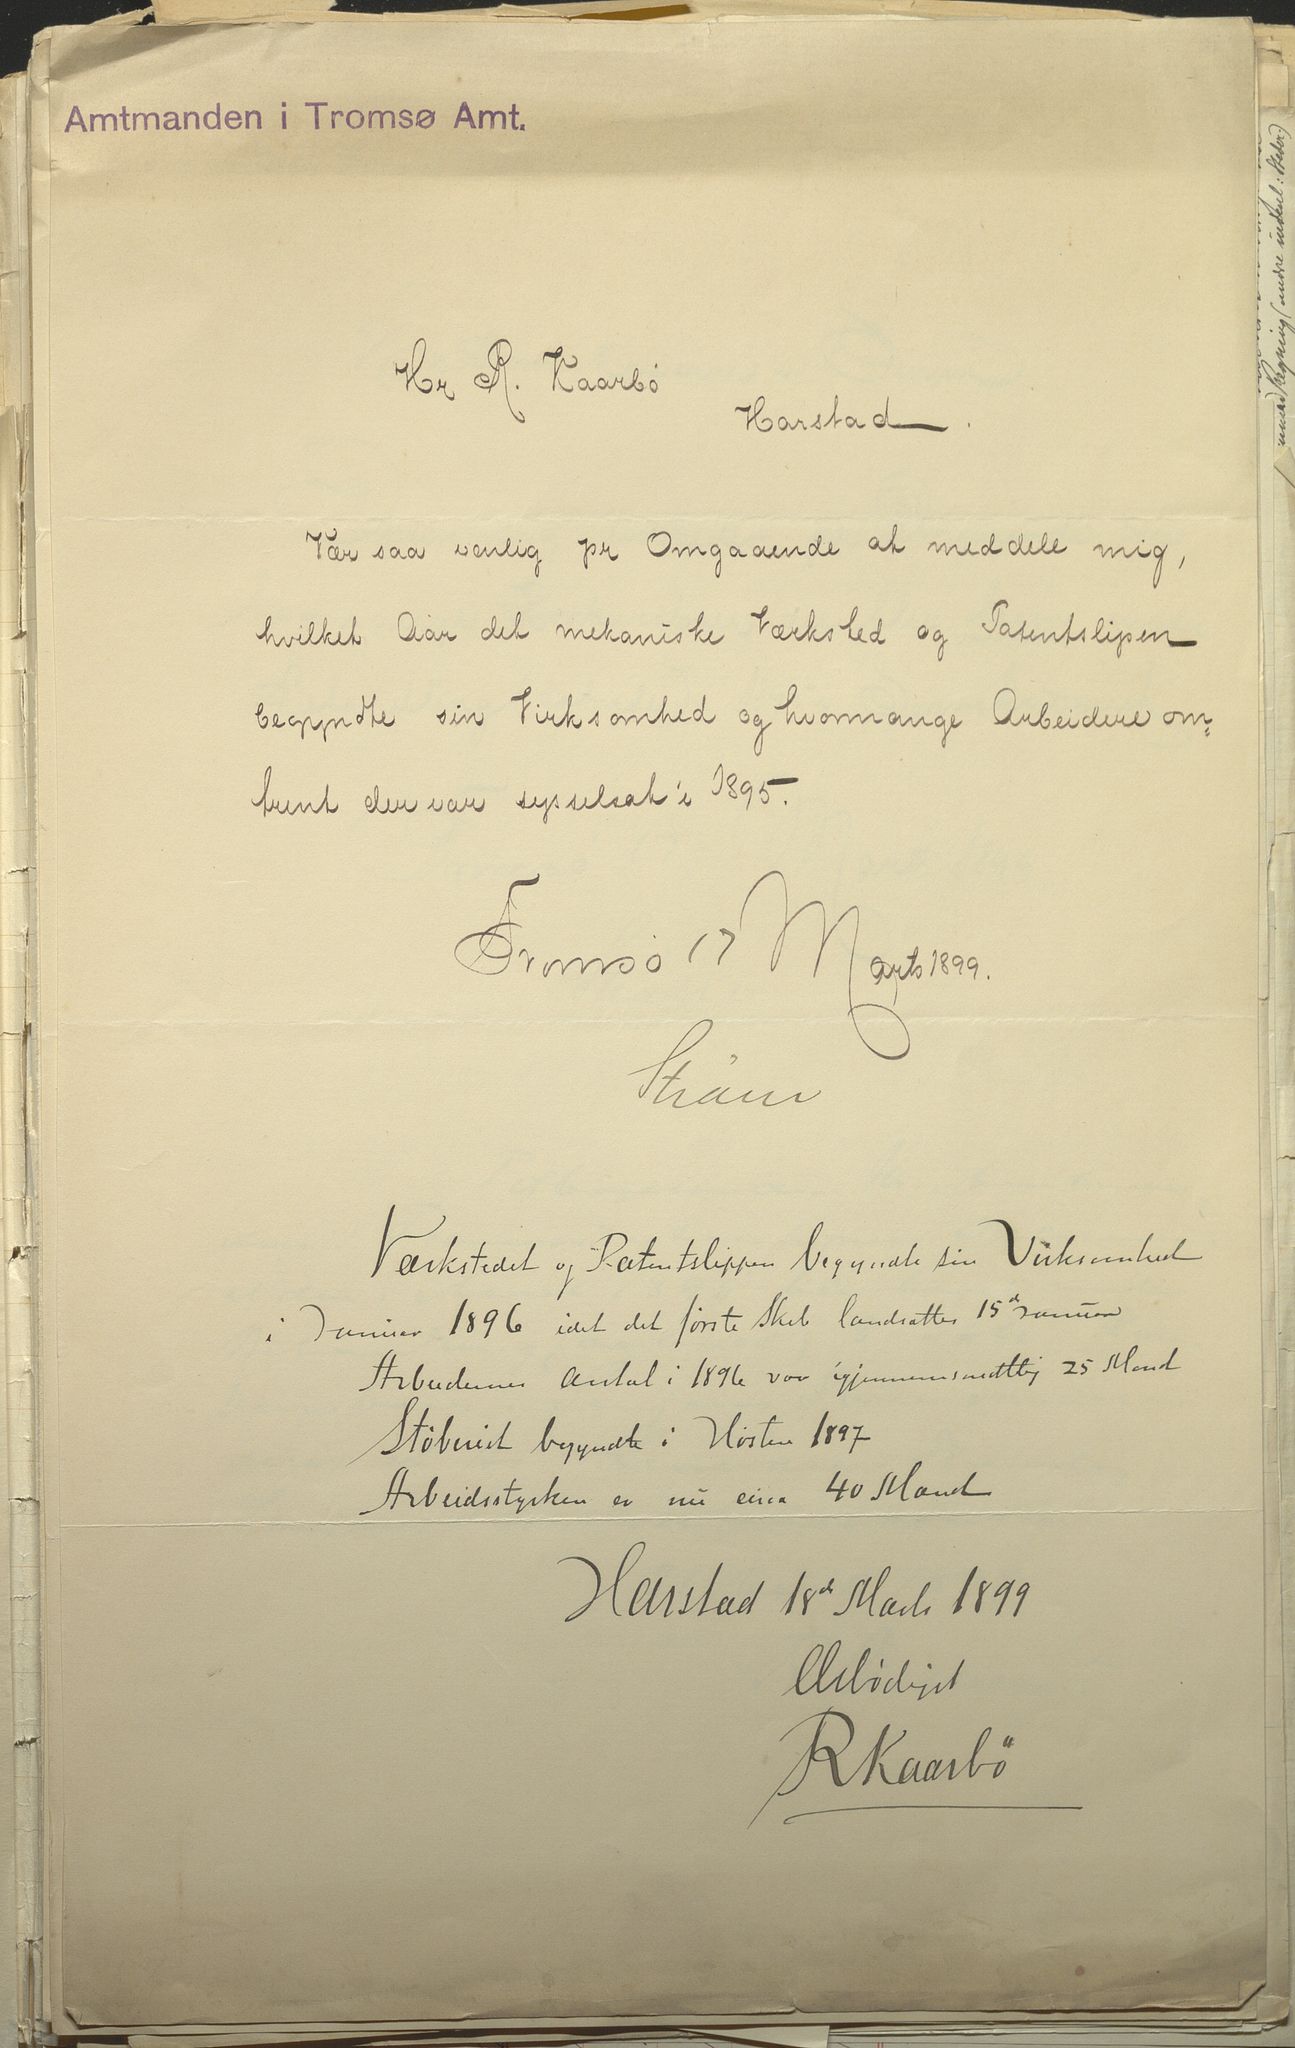 Amtmanden i Tromsø Amt.
Hr R. Kaarbö
Harstad.
Vær saa venlig pr Omgaaende at meddele mig,
hvilket Aar det mekaniske Værksted og Patentslipen
begyndte sin Virksomhed og hvormange Arbeidere om=
trent der var sysselsat i 1895.
Tromsö 17 Marts 1899.
Ström
Værkstedet og Patentslippen begyndte sin Virksomhed
i Januar 1896 idet det første Skib landsattes 15d Januar
Arbeidernes Antal i 1896 var igjennemsnitlig 25 Mand
Støberiet begyndte i Høsten 1897
Arbeidsstyrken er nu circa 40 Mand
Harstad 18d Marts 1899
Ærbødigst
RKaarbö
(andre indkul: Steder)